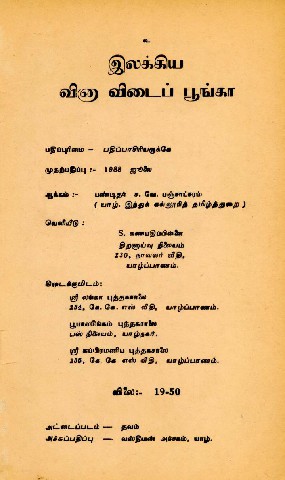 உ
இலக்கிய
வினா விடைப் பூங்கா
பதிப்புரிமை — பதிப்பாசிரியருக்கே
முதற்பதிப்பு :- 1988 ஜூலை
ஆக்கம் :- பண்டிதர் ச. வே. பஞ்சாட்சரம்
( யாழ். இந்துக் கல்லூரித் தமிழ்த்துறை )
வெளியீடு :
S. கணபதிப்பிள்ளை
திறனாய்வு நிலையம்
230, நாவலர் வீதி,
யாழ்ப்பாணம்.
கிடைக்குமிடம்:
ஸ்ரீ லங்கா புத்தகசாலை
234, கே. கே. எஸ் வீதி, யாழ்ப்பாணம்.
பூபாலசிங்கம் புத்தகசாலை
பஸ் நிலையம், யாழ்நகர்.
ஸ்ரீ சுப்பிரமணிய புத்தகசாலை
235, கே. கே எஸ் வீதி, யாழ்ப்பாணம்.
விலை:- 19-50
அட்டைப்படம் — தவம்
அச்சுப்பதிப்பு — வஸ்தியன் அச்சகம், யாழ்.